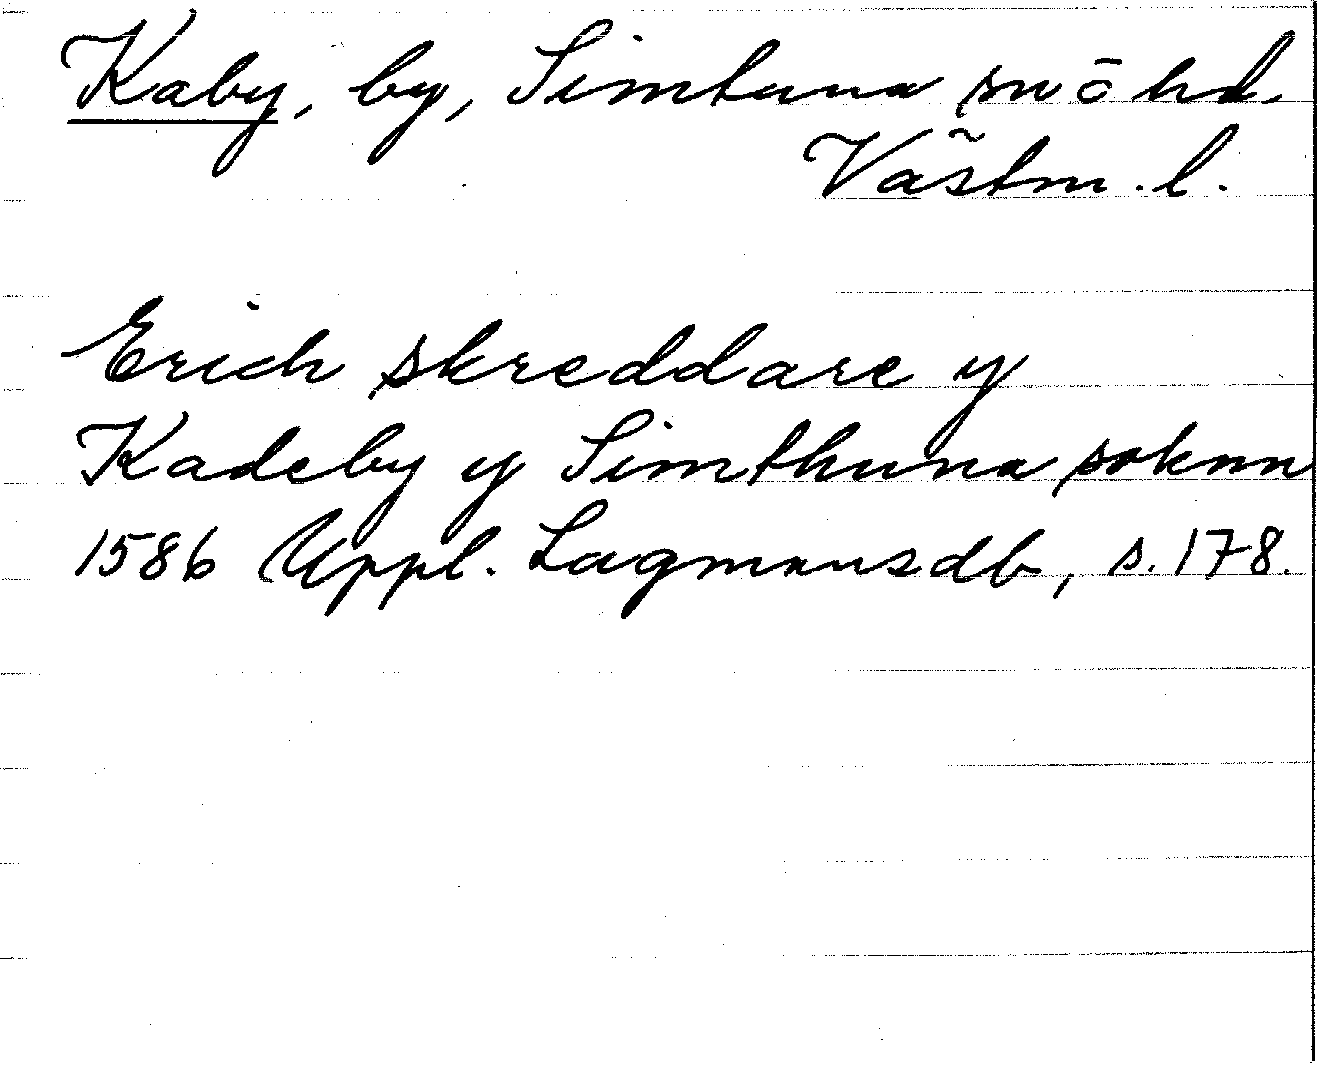 Kaby, by, Simtuna sn ō hd.
Västm. l.
Erich skreddare y
Kadeby y Simthuna soknn
1586 Uppl. Lagmansdb, s. 178.